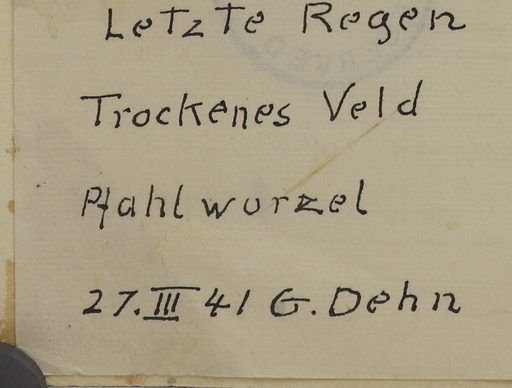 Letzte Regen
Trockenes Veld
Pfahlwurzel
27. III 41 G. Dehn